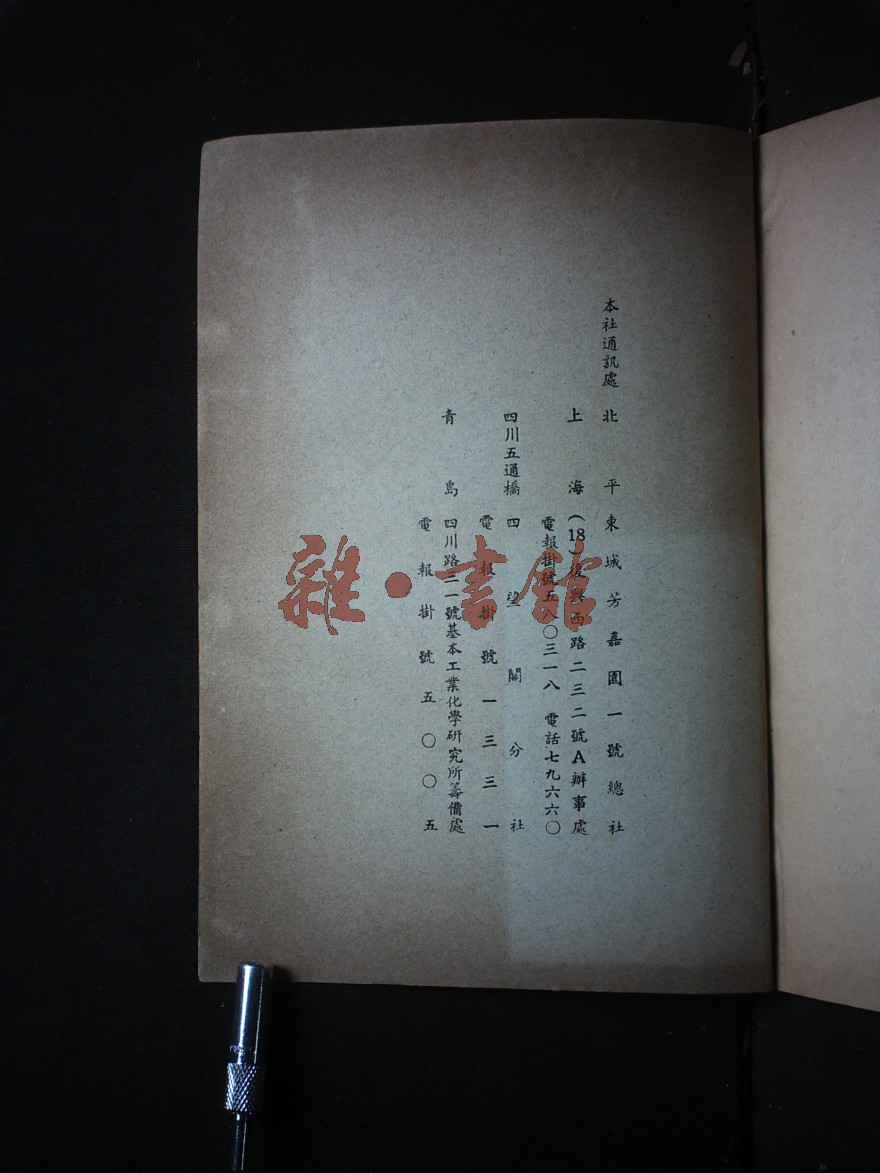 本社通訊處 北平東城芳嘉園一號總社
上海(18)復興西路二三二號A辦事處
電報掛號五八〇三一八 電話七九六六〇
四川五通橋四望關分社
電報掛號一三三一
青島四川路三一號基本工業化學研究所籌備處
電報掛號五〇〇五
雜·書館